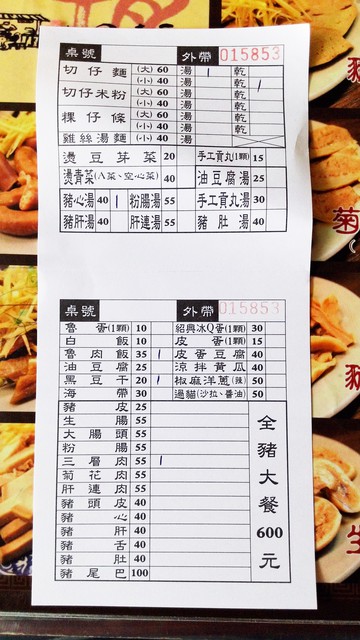 桌號 外帶 015853
切仔麵 (大) 60 湯 乾
(小) 40 湯 乾
切仔米粉 (大) 60 湯 乾
(小) 40 湯 乾
粿仔條 (大) 60 湯 乾
(小) 40 湯 乾
雞絲湯麵 (小) 40 湯
燙豆芽菜 20 手工貢丸(1顆) 15
燙青菜(A菜、空心菜) 40 油豆腐湯 25
豬心湯 40 粉腸湯 55 手工貢丸湯 30
豬肝湯 40 肝連湯 55 豬肚湯 40
桌號 外帶 015853
魯蛋(1顆) 10 紹興冰Q蛋(1顆) 30
白飯 10 皮蛋(1顆) 15
魯肉飯 35 皮蛋豆腐 40
油豆腐 25 涼拌黃瓜 40
黑豆干 20 椒麻洋蔥(辣) 50
海帶 30 過貓(沙拉、醬油) 50
豬皮 25
生腸 55
大腸頭 55
粉腸 55
三層肉 55
菊花肉 55
肝連肉 55
豬頭皮 40
豬心 40
豬肝 40
豬舌 40
豬肚 40
豬尾巴 100
全豬大餐600元
菊
生